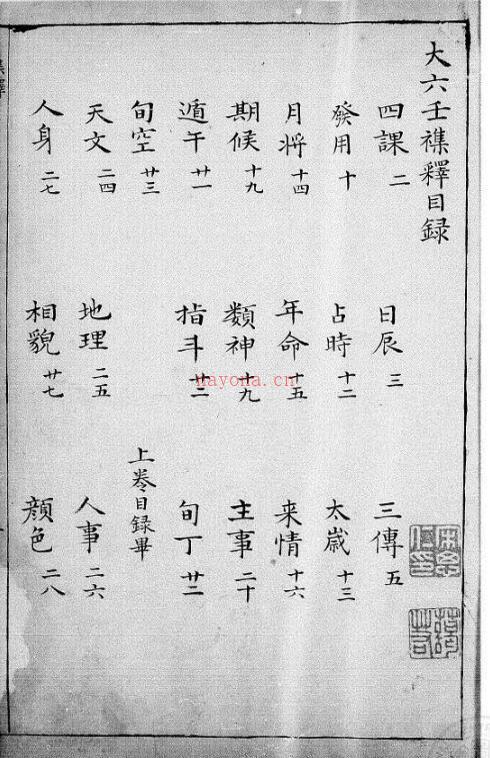 大六壬襍釋目録
四課 二 日辰 三 三傳 五
發用 十 占時 十二 太歲 十三
月將 十四 年命 十五 来情 十六
期候 十九 類神 十九 主事 二十
遁干 廿一 指斗 廿二 旬丁 廿二
旬空 廿三 上卷目録畢
天文 二四 地理 二五 人事 二六
人身 二七 相貌 廿七 顔色 二八
nayona.cn